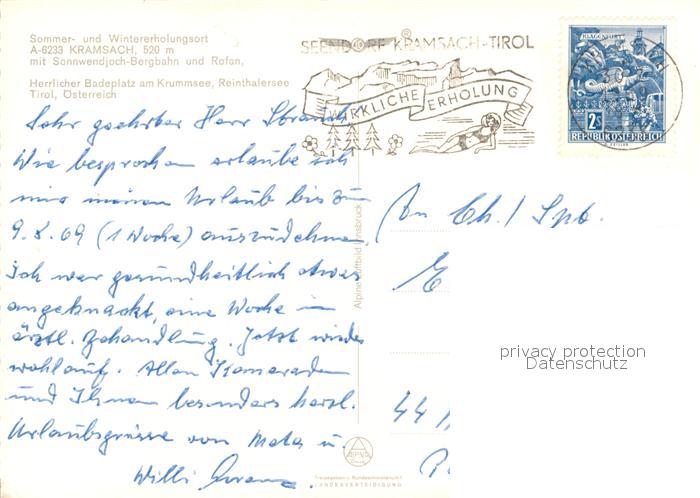 Sommer- und Wintererholungsort
A-6233 KRAMSACH, 520 m
mit Sonnwendjoch-Bergbahn und Rofan,
Herrlicher Badeplatz am Krummsee, Reinthalersee
Tirol, Österreich
SEENDORF KRAMSACH-TIROL
WIRKLICHE ERHOLUNG
KLAGENFURT
2S
REPUBLIK ÖSTERREICH
Sehr geehrter Herr
Wie besprochen erlaube ich
mir meinen Urlaub bis zum
9.8.69 (1 Woche) auszudehnen
Ich war gesundheitlich etwas
angeknackt, eine Woche in
ärztl. Behandlung. Jetzt wieder
wohlauf. Allen Kameraden
und Ihnen besonders herzl.
Urlaubsgrüsse von Meta u.
Willi
Alpine Luftbild Innsbruck
An Ch. /
E
44
privacy protection
Datenschutz
Freigegeben v. Bundesministerium f.
LANDESVERTEIDIGUNG